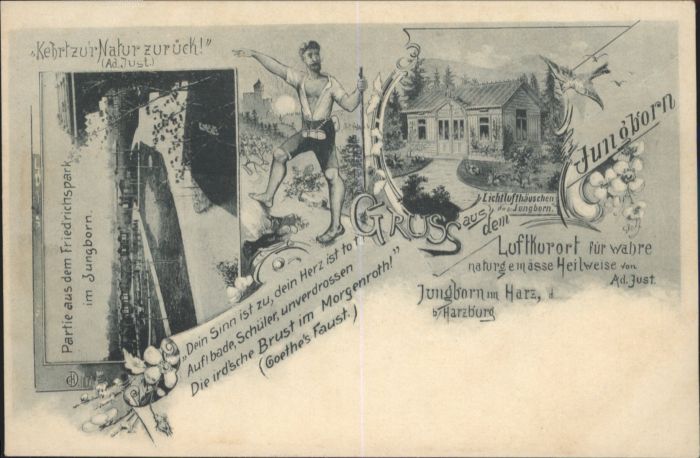 „Kehrt zu'r Natur zurück!"
(Ad. Just.)
Partie aus dem Friedrichspark
im Jungborn.
„Dein Sinn ist zu, dein Herz ist to
Auf! bade, Schüler, unverdrossen
Die ird'sche Brust im Morgenroth!"
(Goethe's Faust.)
Gruss aus
dem
Jungborn
Lichtlufthäuschen
des Jungborn.
Luftkurort für wahre
naturgemässe Heilweise von
Ad. Just.
Jungborn im Harz,
b/ Harzburg